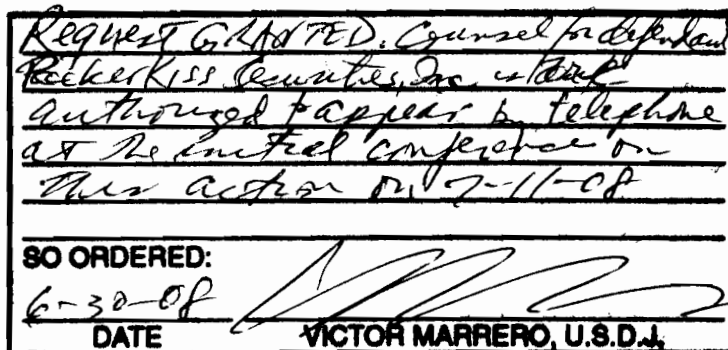 Request GRANTED. Counsel for defendant
PackerKiss Securities, Inc. is
authorized to appear by telephone
at the initial conference on
this action on 7-11-08
SO ORDERED:
6-30-08
DATE VICTOR MARRERO, U.S.D.J.